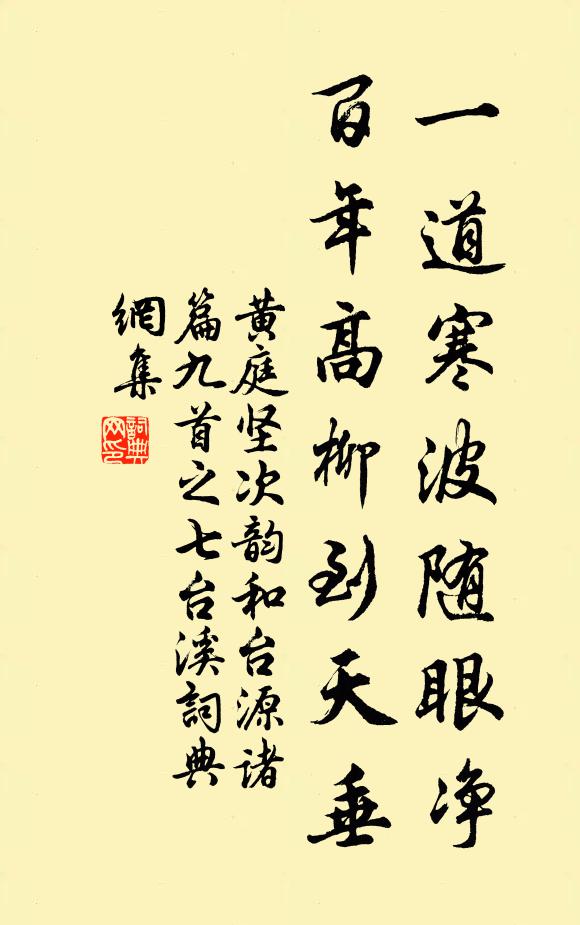 一道寒波随眼净
百年高柳到天垂
黄庭坚次韵和台源诸
篇九首之七台溪詞典
網集
詞典网印